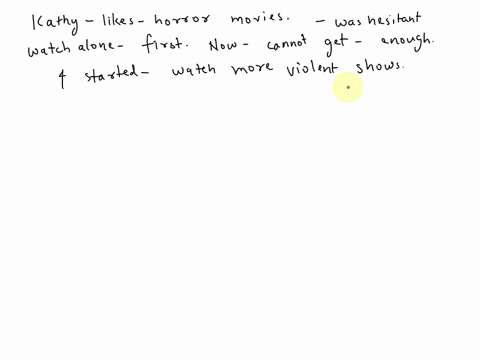 Kathy - likes - horror movies. - was hesitant
watch alone - first. Now - cannot get - enough.
& started - watch more violent shows.